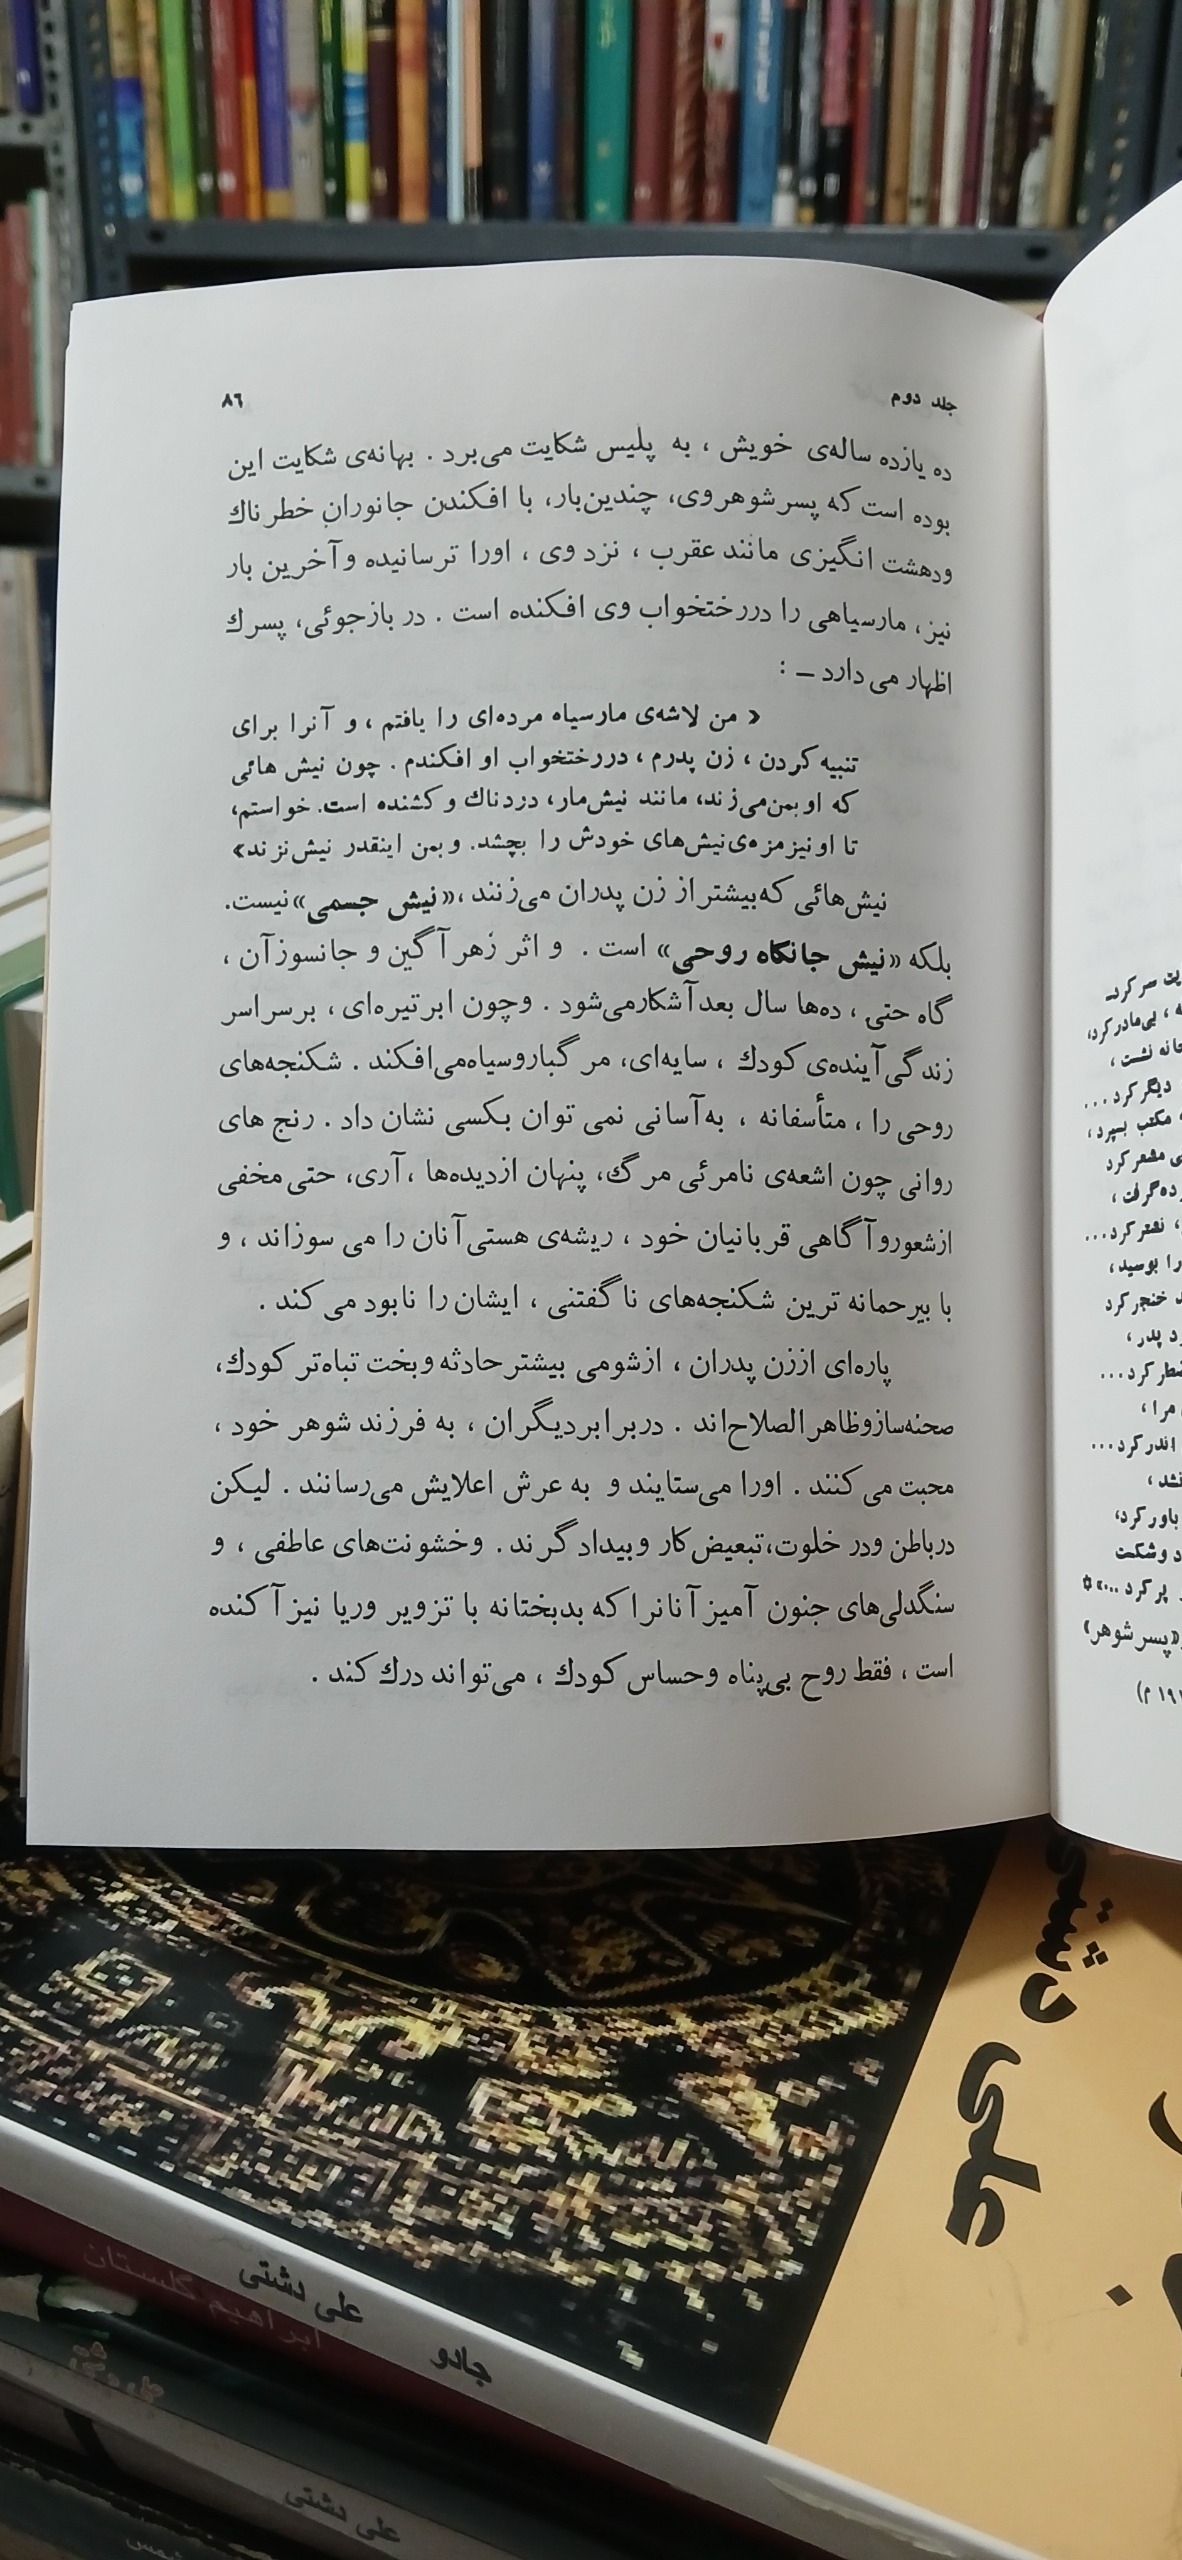 جلد دوم
۸۶
ده یازده ساله‌ی خویش ، به پلیس شکایت می‌برد . بهانه‌ی شکایت این
بوده است که پسر شوهر وی، چندین‌بار، با افکندن جانوران خطرناك
ودهشت انگیزی مانند عقرب ، نزد وی ، اورا ترسانیده و آخرین بار
نیز، مارسیاهی را دررختخواب وی افکنده است . در بازجوئی، پسرك
اظهار می‌دارد ــ :
« من لاشه‌ی مارسیاه مرده‌ای را یافتم ، و آنرا برای
تنبیه کردن ، زن پدرم ، دررختخواب او افکندم . چون نیش هائی
که او بمن‌می‌زند، مانند نیش‌مار، دردناك و کشنده است. خواستم،
تا او نیز مزه‌ی‌نیش‌های خودش را بچشد. و بمن اینقدر نیش‌نزند»
نیش‌هائی که بیشتر از زن پدران می‌زنند ، «نیش جسمی» نیست.
بلکه «نیش جانکاه روحی» است . و اثر زهر آگین و جانسوز آن ،
گاه حتی ، ده‌ها سال بعد آشکار می‌شود . و چون ابر تیره‌ای ، بر سراسر
زندگی آینده‌ی کودك ، سایه‌ای، مرگبار و سیاه می‌افکند . شکنجه‌های
روحی را ، متأسفانه ، به‌آسانی نمی توان بکسی نشان داد . رنج های
روانی چون اشعه‌ی نامرئی مرگ، پنهان ازدیده‌ها ، آری، حتی مخفی
ازشعورو آگاهی قربانیان خود ، ریشه‌ی هستی آنان را می سوزاند ، و
با بیرحمانه ترین شکنجه‌های ناگفتنی ، ایشان را نابود می کند .
پاره‌ای اززن پدران ، ازشومی بیشتر حادثه و بخت تباه‌تر کودك،
صحنه‌سازو ظاهر الصلاح‌اند . در برابر دیگران ، به فرزند شوهر خود ،
محبت می کنند . اورا می‌ستایند و به عرش اعلایش می‌رسانند . لیکن
درباطن ودر خلوت، تبعیض‌کار و بیدادگرند . و خشونت‌های عاطفی ، و
سنگدلی‌های جنون آمیز آنانرا که بدبختانه با تزویر و ریا نیز آکنده
است ، فقط روح بی‌پناه و حساس کودك ، می‌تواند درك کند .
سر کرد ــ
، بی‌مادر کرد،
نشست ،
دیگر کرد ...
مکتب بسپرد ،
کرد
گرفت ،
کرد ...
را بوسید ،
خنجر کرد
پدر ،
کرد ...
مرا ،
اندر کرد ...
باور کرد،
وشکست
پر کرد ...»
«پسر شوهر»
علی دشتی
علی دشتی
جادو
ابراهیم گلستان
علی دشتی